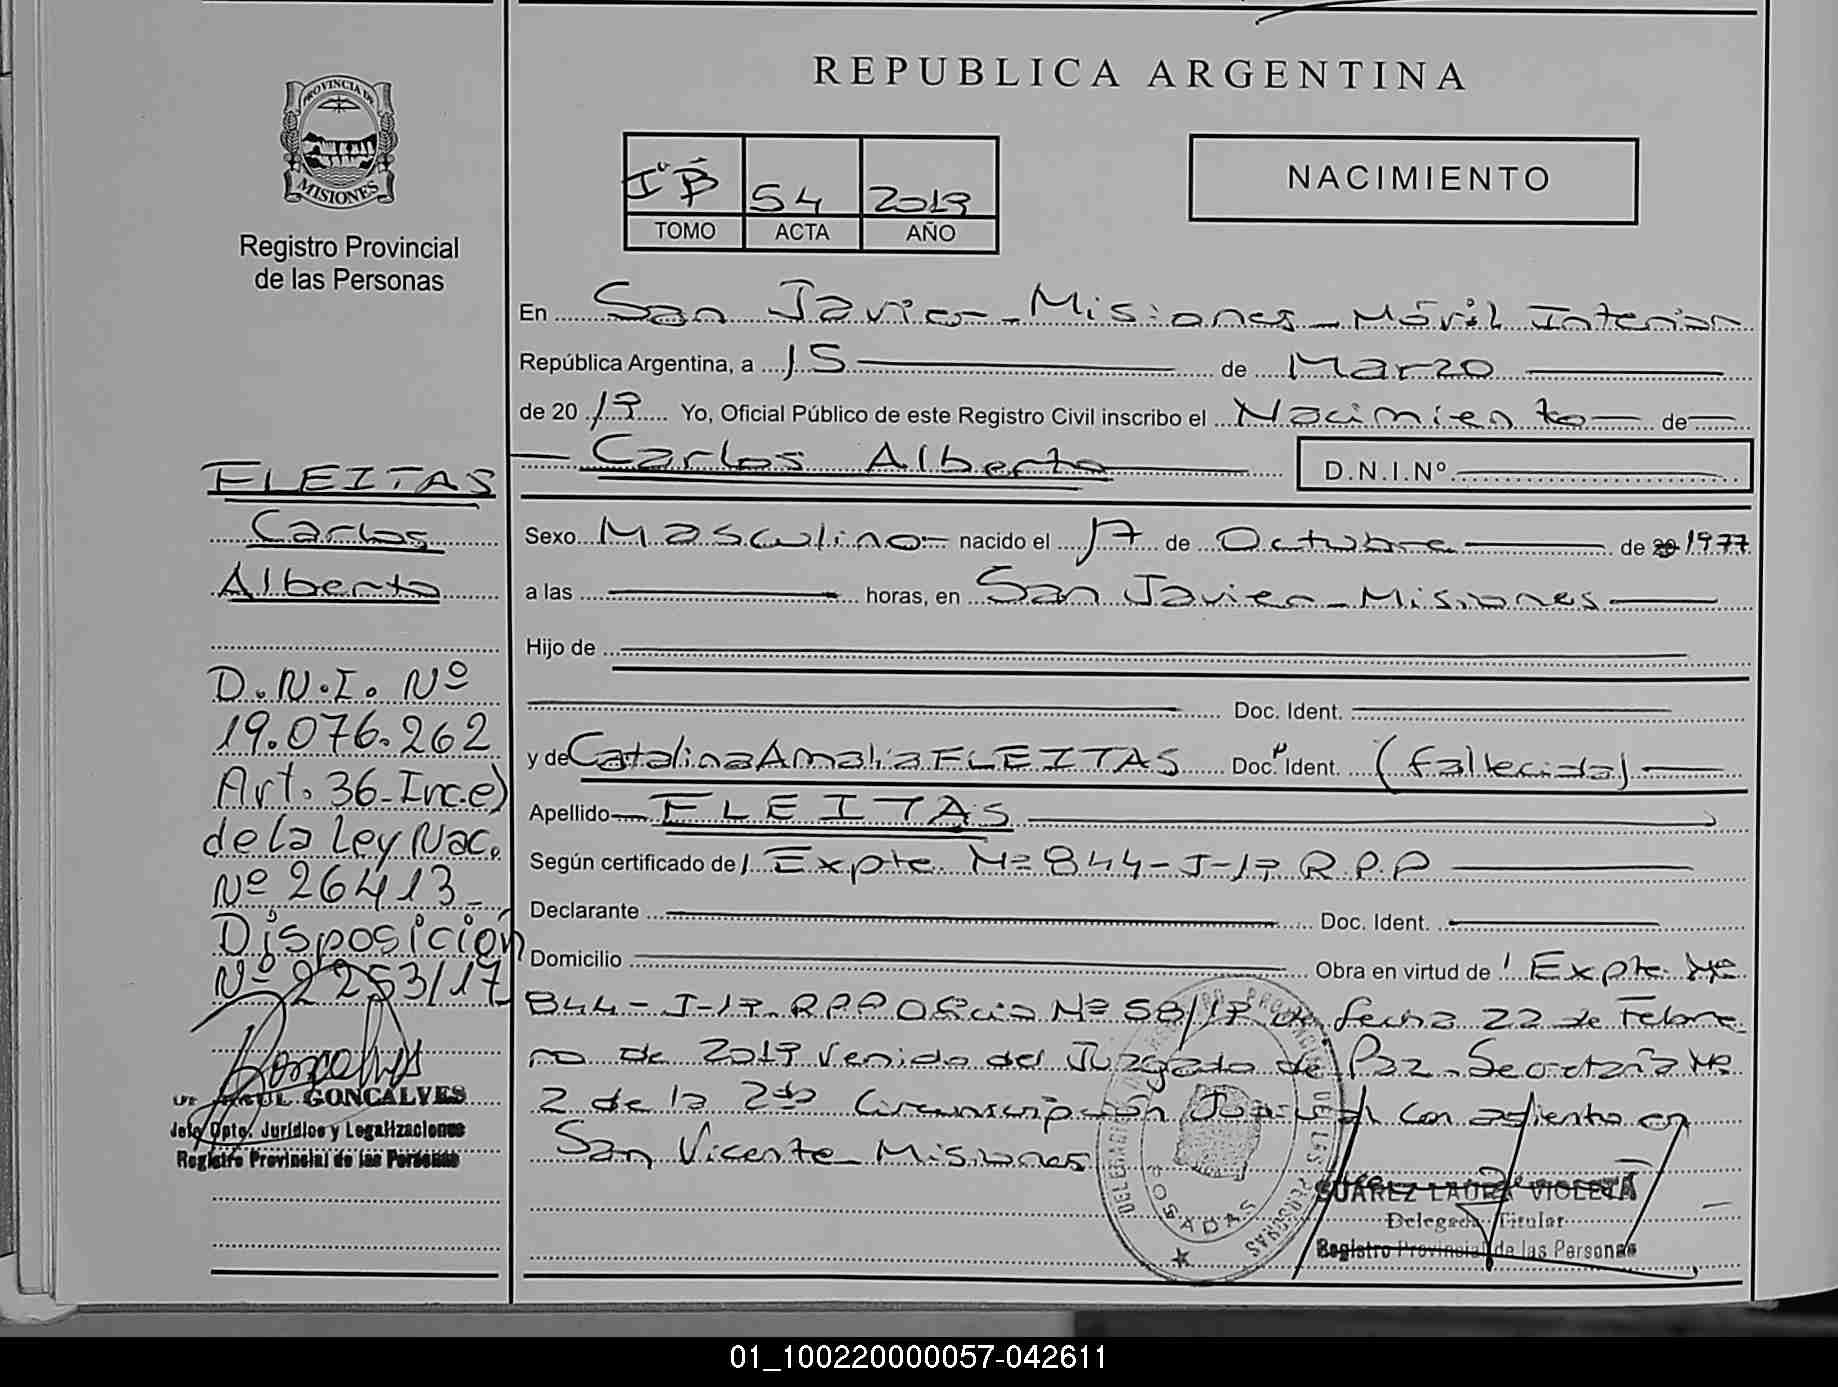 REPUBLICA ARGENTINA
PROVINCIA DE
MISIONES
Registro Provincial
de las Personas
54 2019
TOMO ACTA AÑO
NACIMIENTO
En San Javier - Misiones - Móvil Interior
República Argentina, a 15 de Marzo
de 2019 Yo, Oficial Público de este Registro Civil inscribo el Nacimiento de
Carlos Alberto D.N.I.Nº
Sexo Masculino nacido el 17 de Octubre de 1977
a las horas, en San Javier - Misiones
Hijo de
Doc. Ident.
y de Catalina Amalia FLEITAS Doc. Ident. (fallecida)
Apellido FLEITAS
Según certificado de Expte Nº 844-J-17 R.P.P
Declarante Doc. Ident.
Domicilio Obra en virtud de Expte. Nº
844-J-17. RPP Oficio Nº 58/19 de fecha 22 de Febre
ro de 2019 Venido del Juzgado de Paz - Secretaría Nº
2 de la 2da Circunscripción Judicial con asiento en
San Vicente - Misiones
FLEITAS
Carlos
Alberto
D.N.I. Nº
19.076.262
Art. 36-Inc.e)
de la Ley Nac.
Nº 26413-
Disposición
Nº 2253/17
GONCALVES
Jefe Dpto. Jurídico y Legalizaciones
Registro Provincial de las Personas
POSADAS
SUAREZ LAURA VIOLETA
Delegada Titular
Registro Provincial de las Personas
01_100220000057-042611